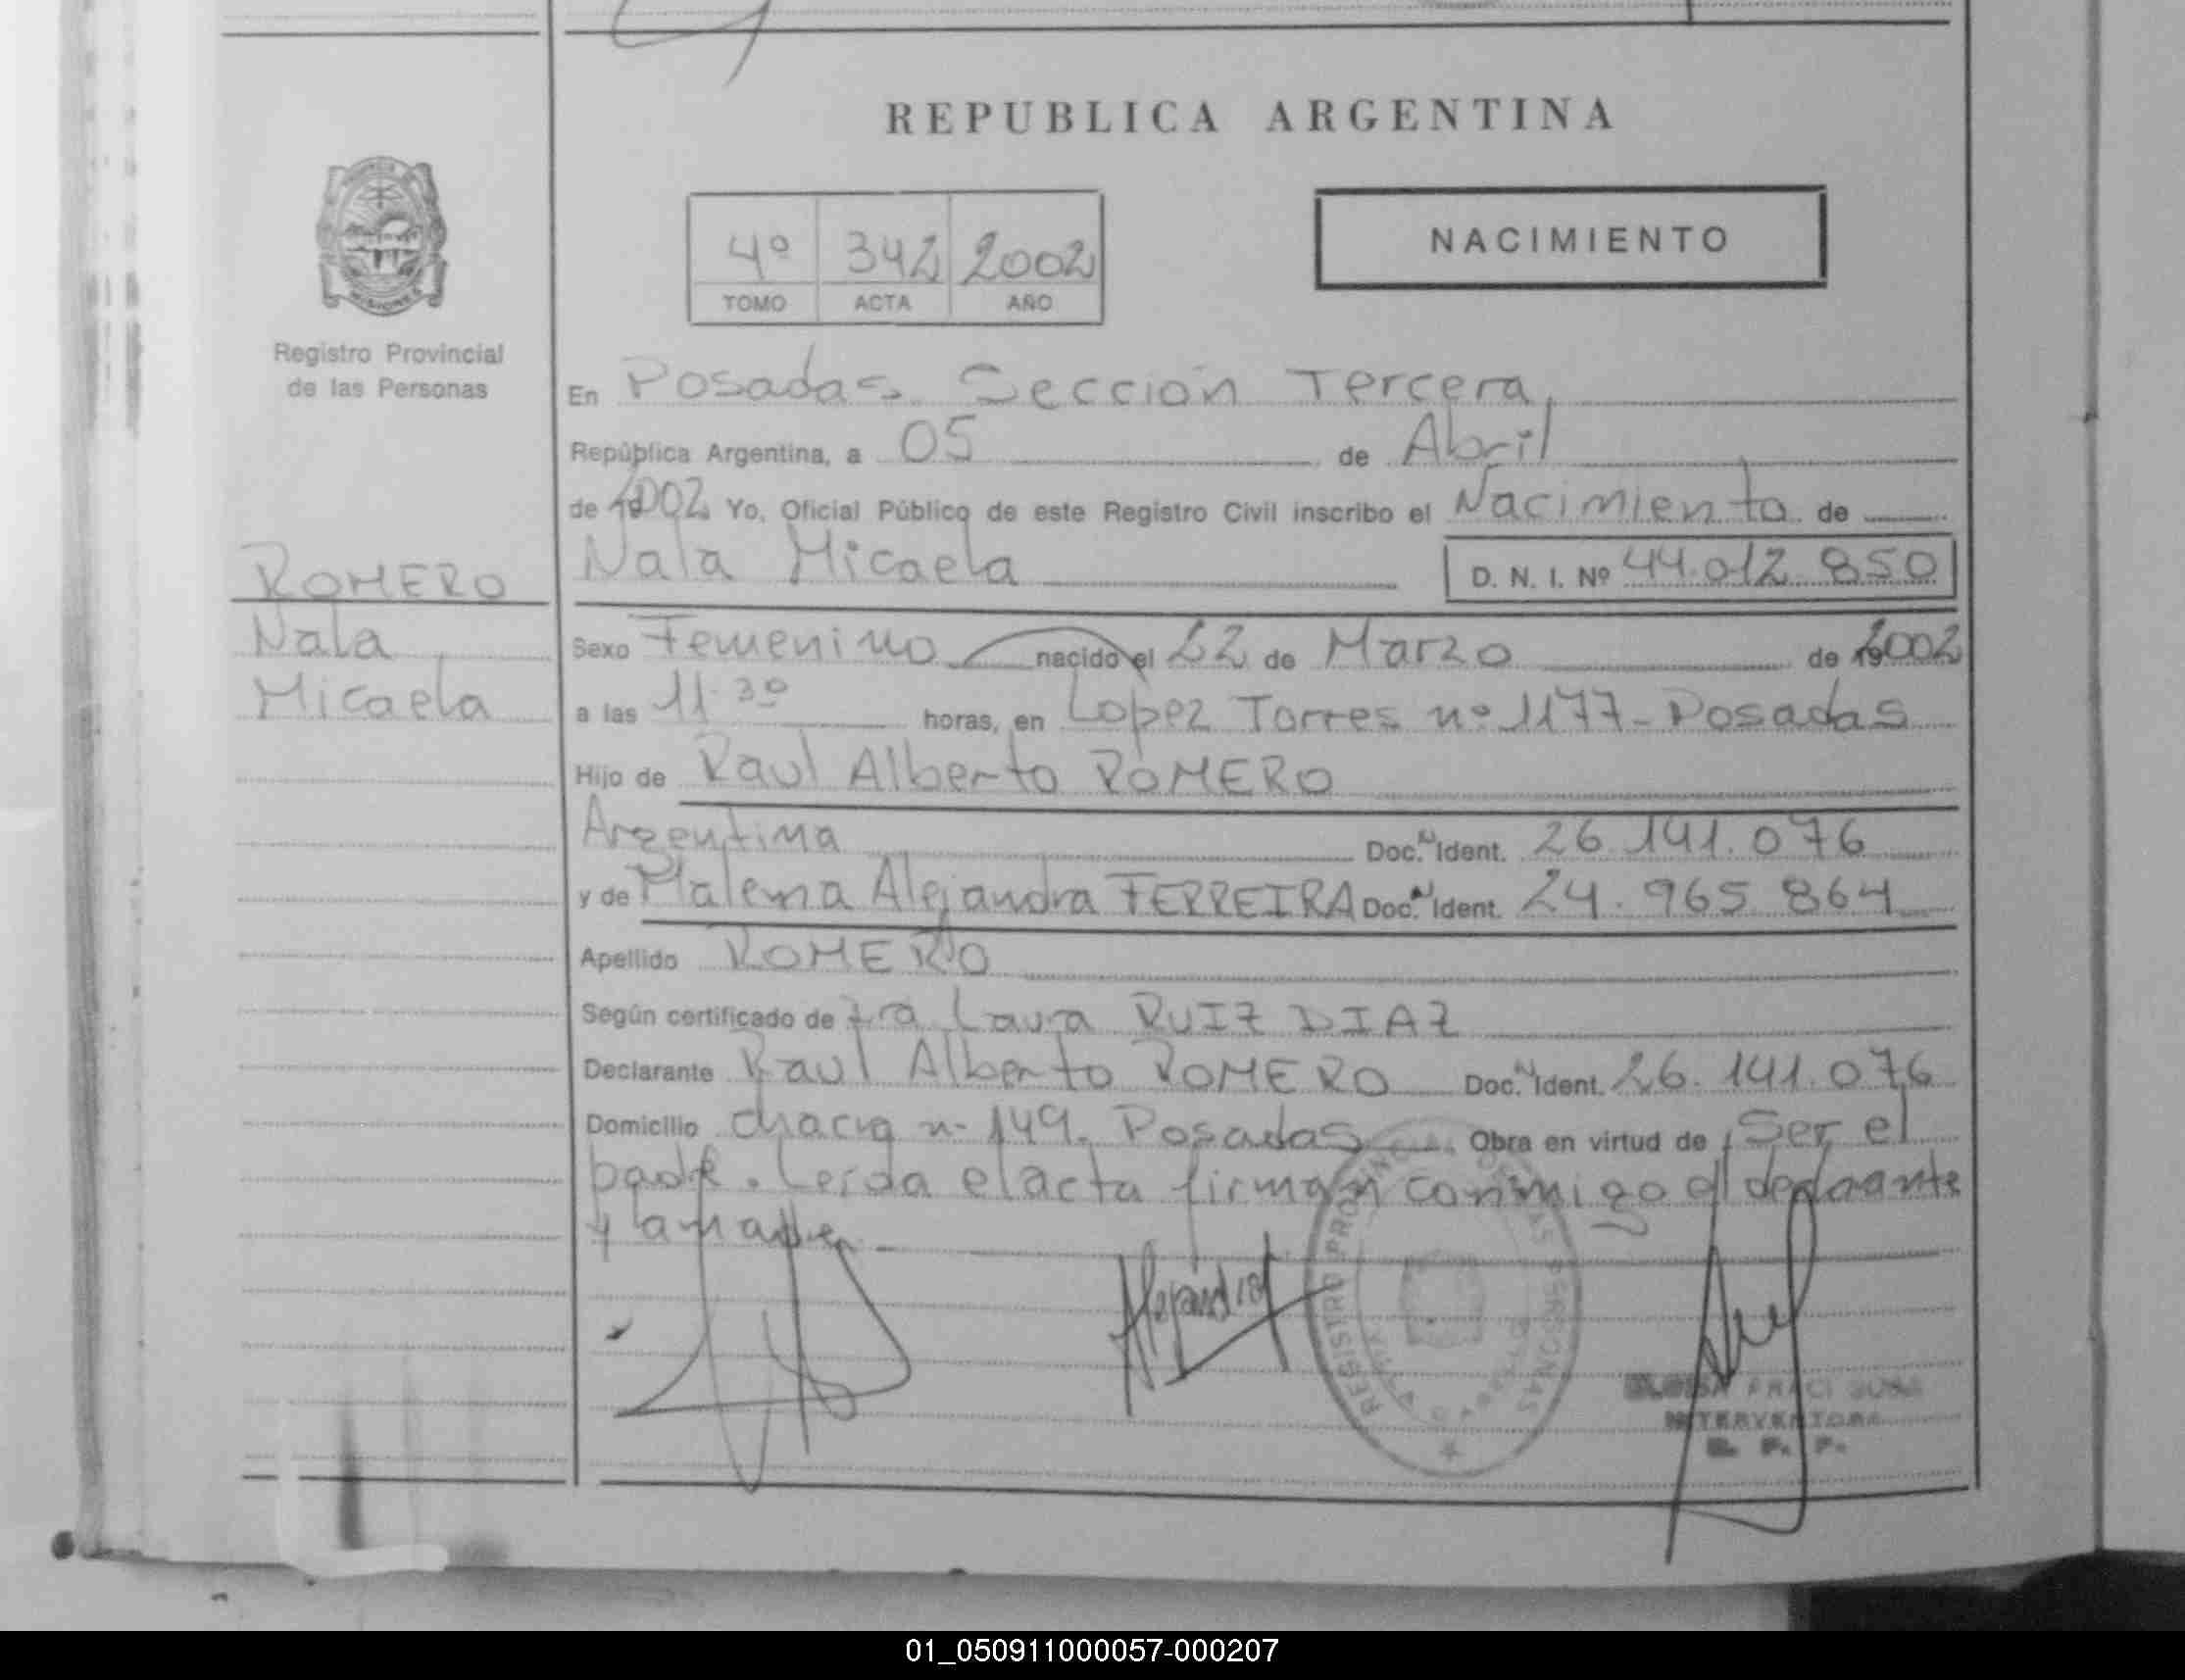 REPUBLICA ARGENTINA
4º 342 2002
TOMO ACTA AÑO
NACIMIENTO
Registro Provincial
de las Personas
ROMERO
Nala
Micaela
En Posadas Sección Tercera,
República Argentina, a 05 de Abril
de 2002 Yo, Oficial Público de este Registro Civil inscribo el Nacimiento de
Nala Micaela D. N. I. Nº 44.012.850
Sexo Femenino nacido el 22 de Marzo de 2002
a las 11.30 horas, en Lopez Torres nº 1177 - Posadas
Hijo de Raul Alberto ROMERO
Argentina Doc. Nº Ident. 26.141.076
y de Malena Alejandra FERREIRA Doc. Nº Ident. 24.965.864
Apellido ROMERO
Según certificado de Laura RUIZ DIAZ
Declarante Raul Alberto ROMERO Doc. Nº Ident. 26.141.076
Domicilio chacra n- 149. Posadas Obra en virtud de Ser el
padre. Leída el acta firman conmigo el declarante
y la madre.
Alejandra
REGISTRO PROVINCIAL DE LAS PERSONAS
INTERVENTORA
R. P. P.
01_050911000057-000207